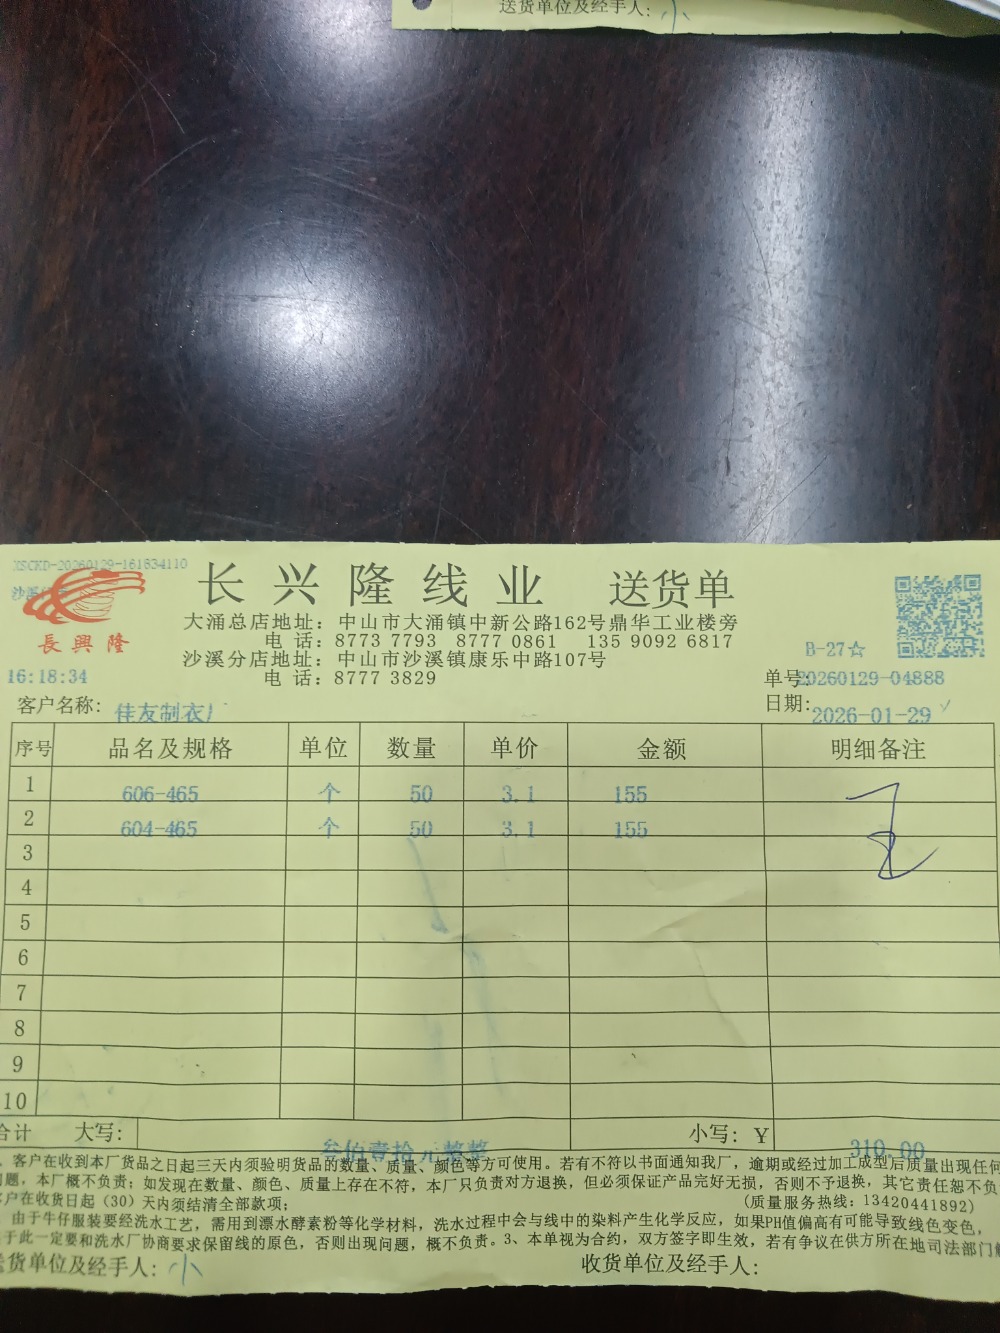 送货单位及经手人: 小
XSCKD-20260129-161834110
長興隆
长兴隆线业 送货单
大涌总店地址: 中山市大涌镇中新公路162号鼎华工业楼旁
电 话: 8773 7793 8777 0861 135 9092 6817
沙溪分店地址: 中山市沙溪镇康乐中路107号
电 话: 8777 3829
B-27☆
16:18:34
单号:20260129-04888
客户名称: 佳友制衣厂
日期: 2026-01-29
序号 品名及规格 单位 数量 单价 金额 明细备注
1 606-465 个 50 3.1 155
2 604-465 个 50 3.1 155
3
4
5
6
7
8
9
10
合计 大写: 叁佰壹拾元整整 小写: ¥ 310.00
客户在收到本厂货品之日起三天内须验明货品的数量、质量、颜色等方可使用。若有不符以书面通知我厂, 逾期或经过加工成型后质量出现任何
问题, 本厂概不负责; 如发现在数量、颜色、质量上存在不符, 本厂只负责对方退换, 但必须保证产品完好无损, 否则不予退换, 其它责任恕不负
客户在收货日起 (30) 天内须结清全部款项; (质量服务热线: 13420441892)
由于牛仔服装要经洗水工艺, 需用到漂水酵素粉等化学材料, 洗水过程中会与线中的染料产生化学反应, 如果PH值偏高有可能导致线色变色,
于此一定要和洗水厂协商要求保留线的原色, 否则出现问题, 概不负责。3、本单视为合约, 双方签字即生效, 若有争议在供方所在地司法部门
送货单位及经手人: 小
收货单位及经手人: